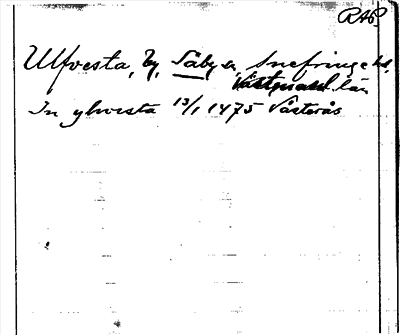 RAP
Ulfvesta, by, Säby sn, Snefringe hd,
Västmanl. län
In ylvesta 13/1 1475 Västerås